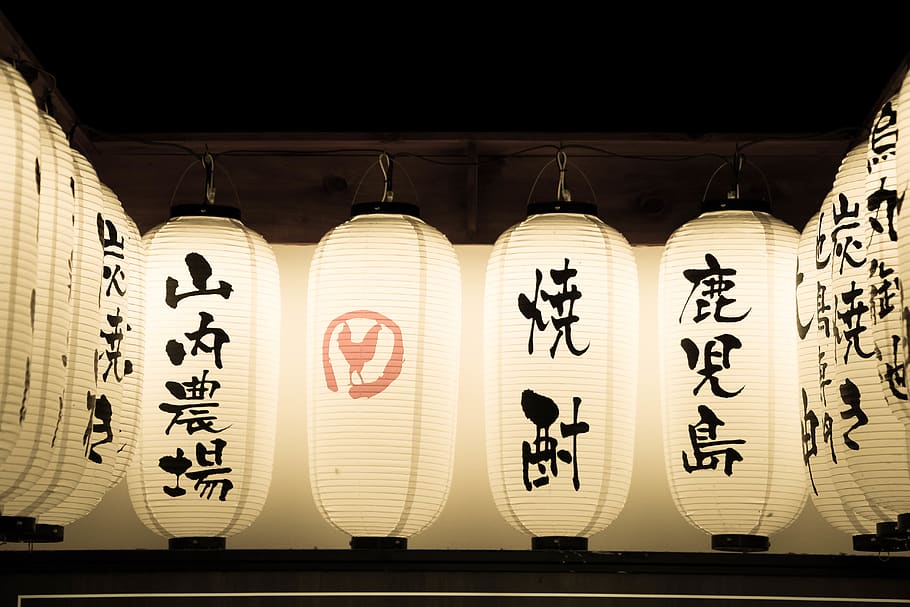 炭焼き
山内農場
焼酎
鹿児島
地鳥専門
炭焼き